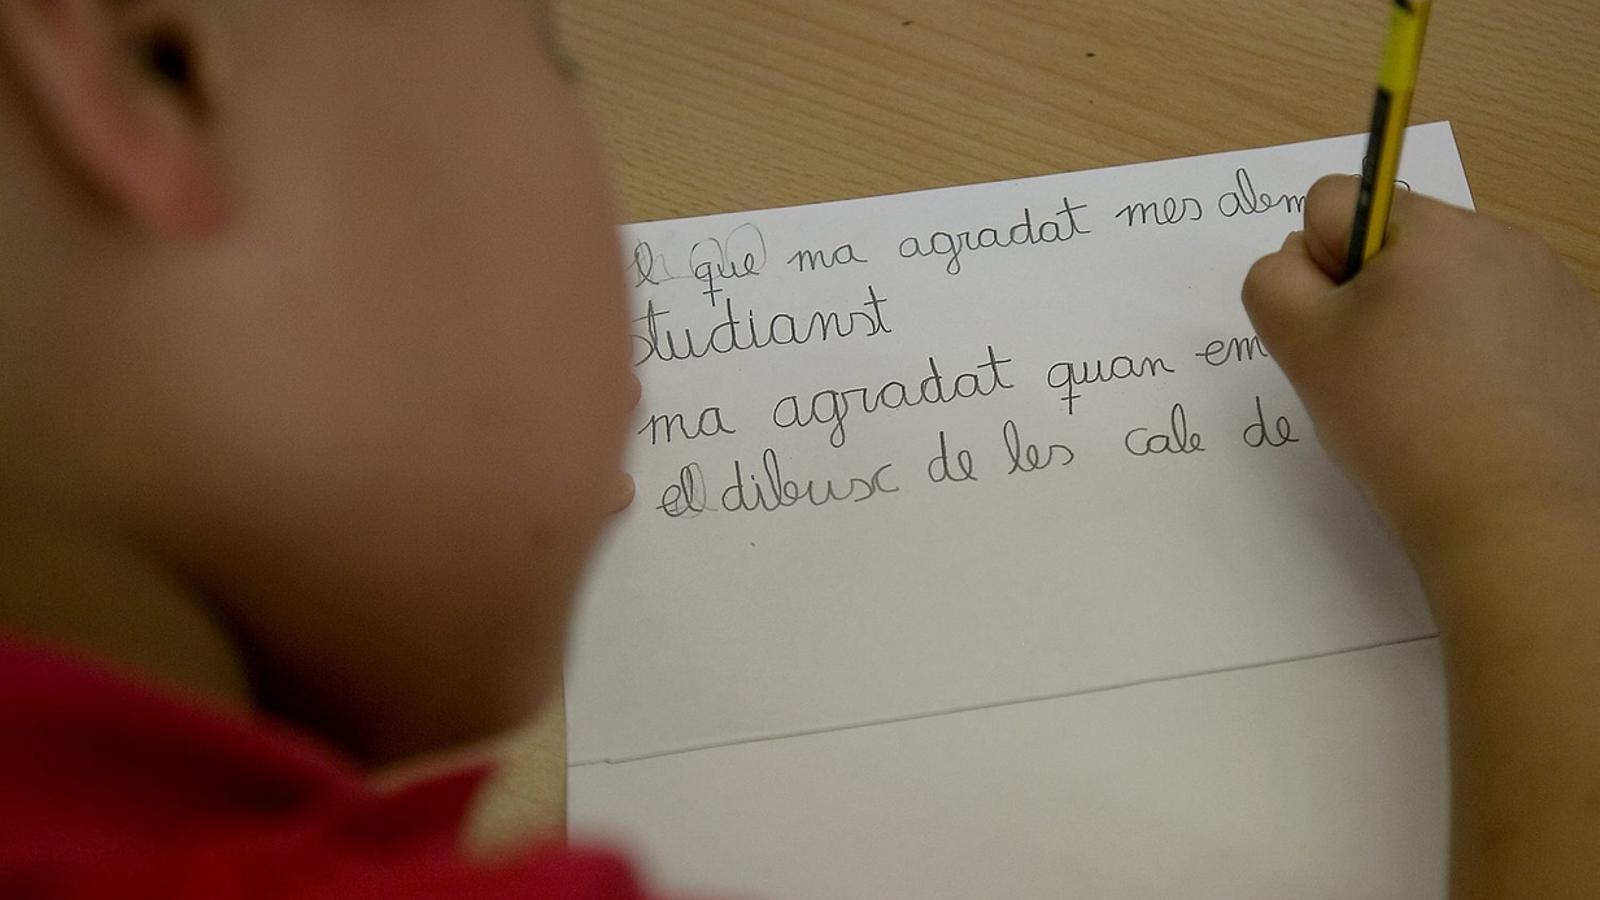 que ma agradat mes
studianst
ma agradat quan em
el dibusc de les cale de